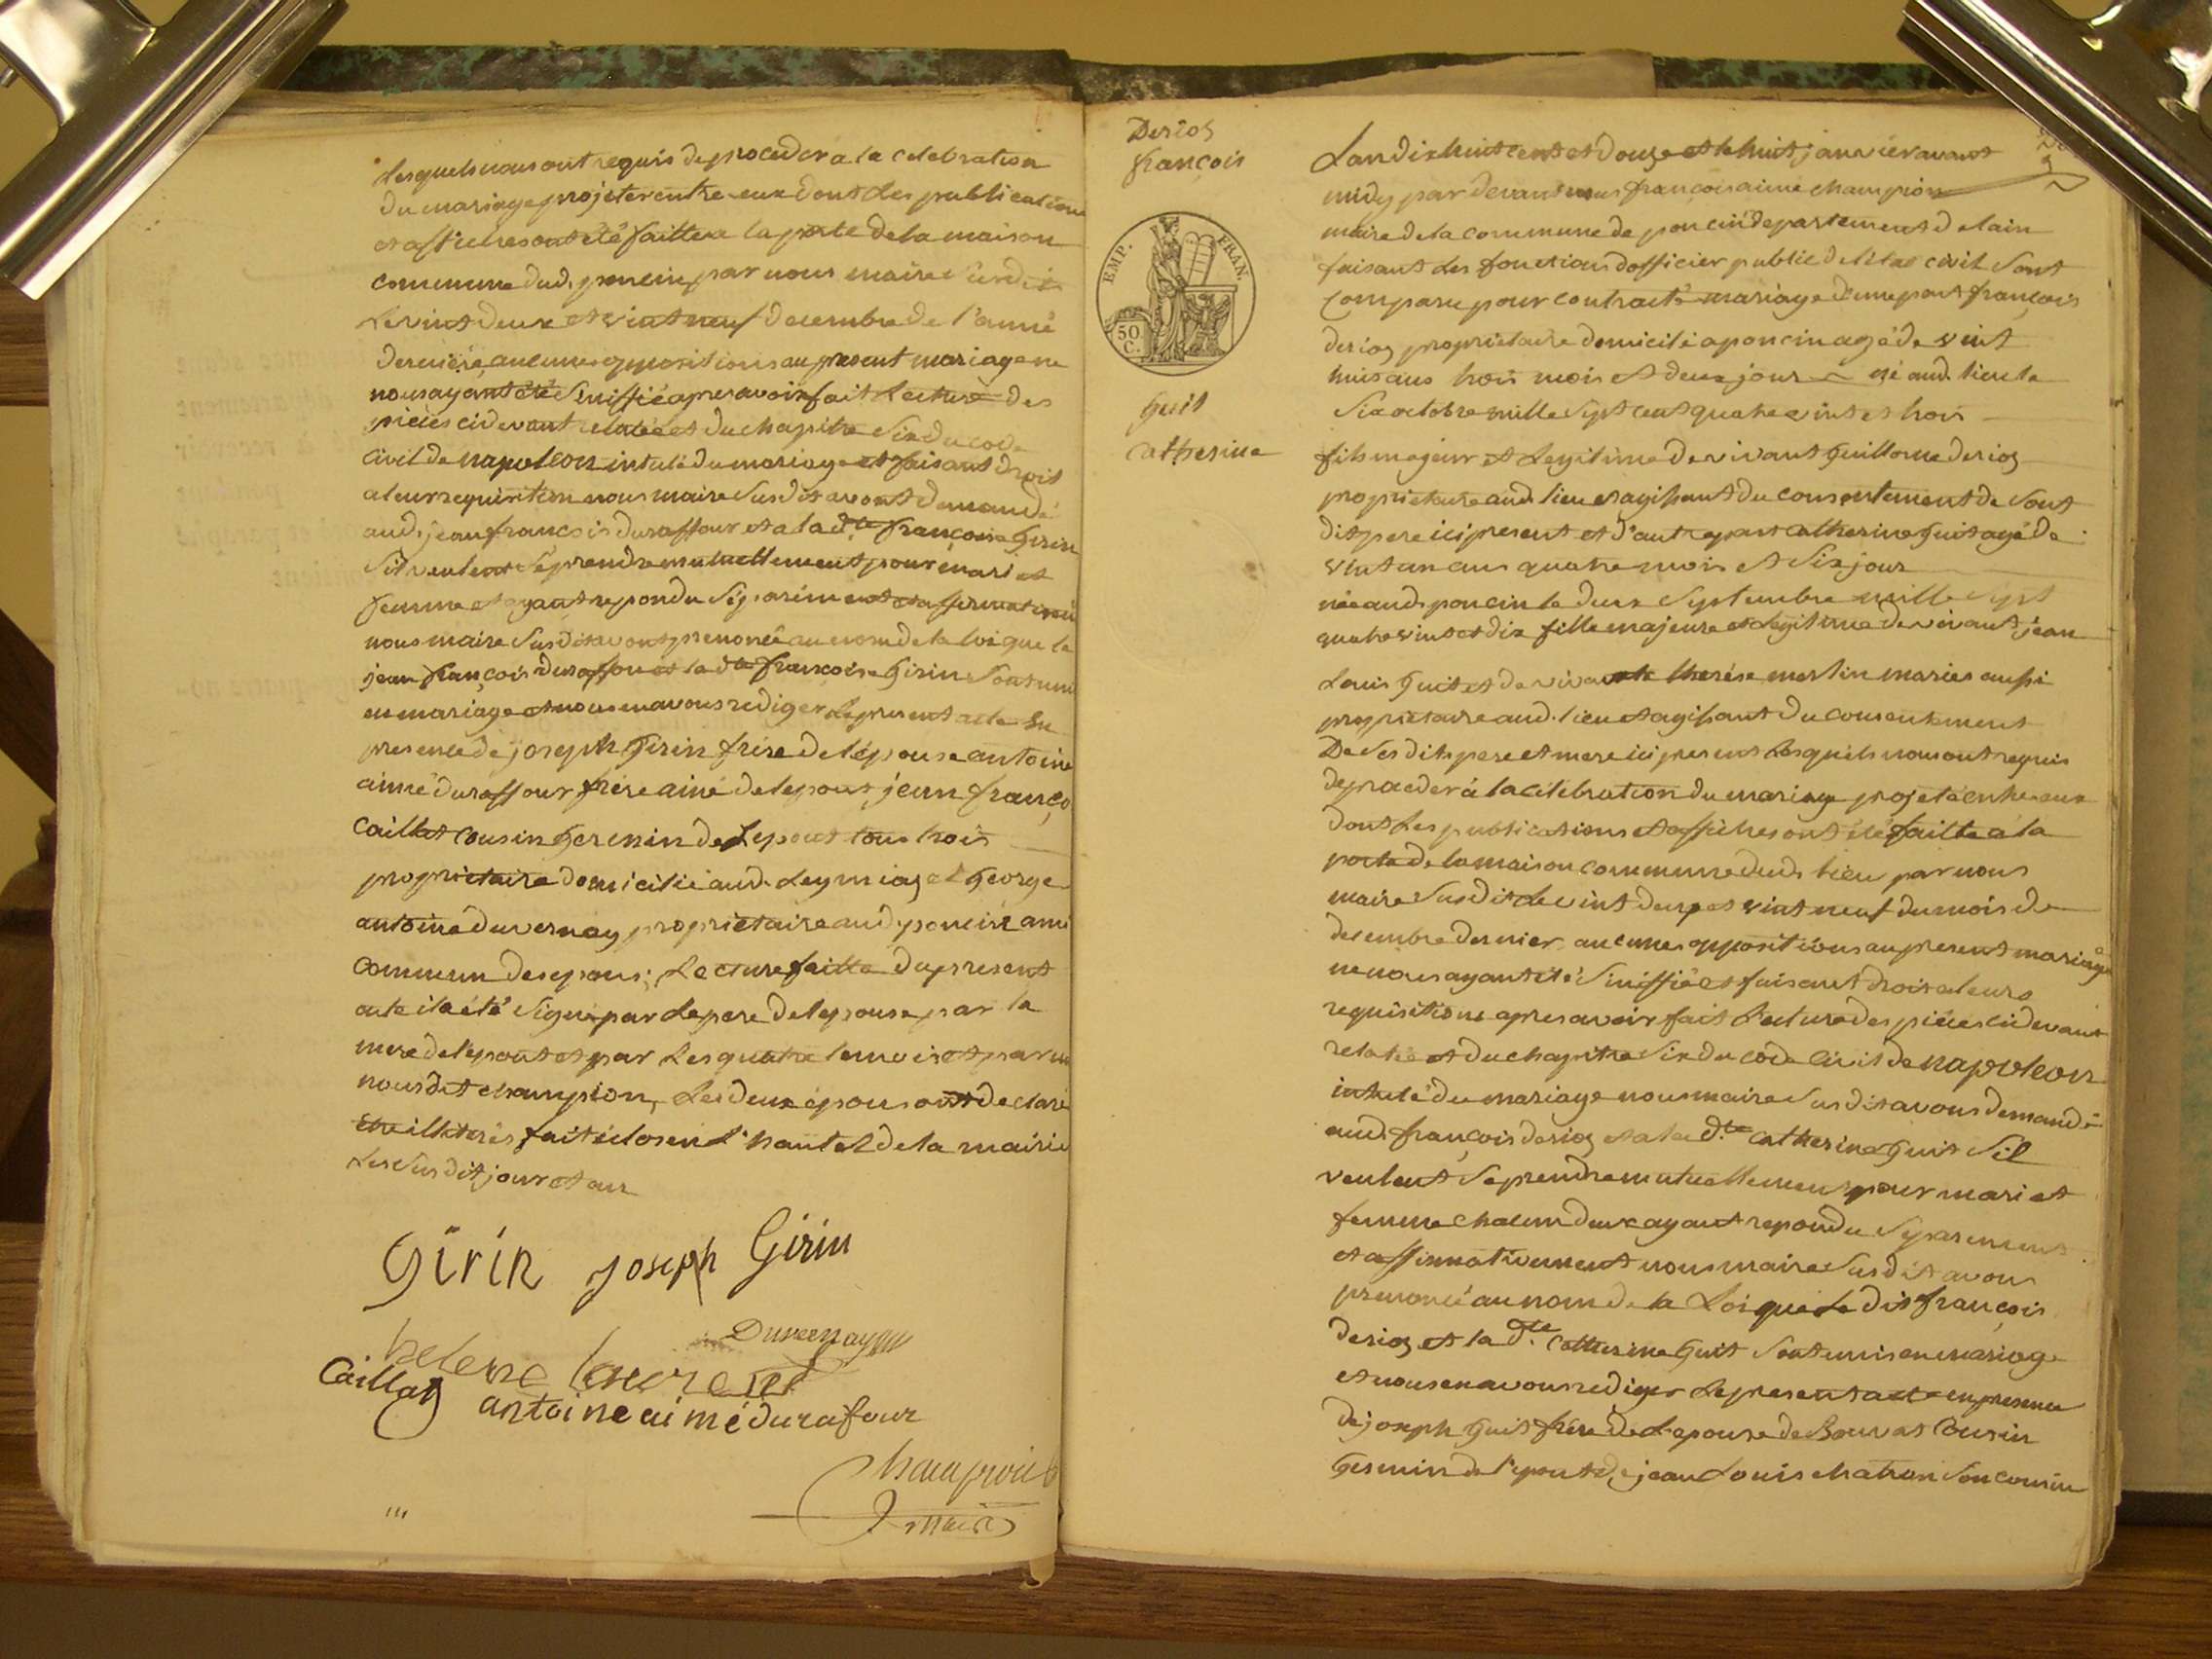 lesquels nous ont requis de proceder a la celebration
du mariage projeter entre eux dont les publications
et affiches ont été faittes a la porte de la maison
commune dud. poncin par nous maire susdit
le vint deux et vint neuf decembre de l'anné
derniere aucunes oppositions au present mariage ne
nous ayant été siniffié apres avoir fait lecture des
pieces ci devant relatées et du chapitre six du code
civil de napoleon intulé du mariage et faisant droit
a leur requisition nous maire susdit avont demandé
aud. jean francois duraffour et a la dlle françoise Girin
sil veulent se prendre mutuellement pour mari et
femme et ayant repondu séparément et affirmativem
nous maire susdit avont prenoncé au nom de la loi que le
jean françois duraffour et la dlle francoise Girin sont uni
en mariage et nous en avons rediger le present acte En
presence de joseph Girin frère de lépouse antoine
aimé duraffour frère ainé de lepout, jean franço
caillat cousin Germin de Lepout tous trois
proprietaire domicilié aud. Leymiaz et George
antoine duvernay proprietaire aud. poncin ami
commun des epous; Lecture faitte du present
acte il a été signé par le pere de lepouse par la
mere de lepout et par les quatre temoins et par
nous dit champion, Les deux épous ont declaré
être illiterés fait et clos en l'hautel de la mairie
Les susdit jour et an
Girin joseph Girin
Duvernay
helene
Caillat
antoine aimé durafour
Champion
maire
'''
Derios
françois
EMP. FRAN.
50
C.
Guit
catherine
Lan dix huit cent et douze et le huit janvier avant
midy par devant nous françois aimé champion
maire de la commune de poncin departement de lain
faisant les fonctions dofficier public de l'etat civil sont
comparu pour contracté mariage d'une part françois
derios proprietaire domicilié a poncin agé de vint
huit ans trois mois et deux jour né aud. lieu le
six octobre mille sept cent quatre vint et trois
fils majeur et Legitime de vivant Guillome derios
proprietaire aud. lieu et agissant du consentement de sont
dit pere ici present et d'autre part catherine Guit agé de
vint un ans quatre mois et six jour
née aud. poncin le deux septembre mille sept
quatre vint et dix fille majeure et Legitime de vivant jean
Louis Guit et de vivante therése merlin mariés aussi
proprietaire aud. lieu et agissant du consentement
De ses dits pere et mere ici present Lesquels nous ont requis
de proceder à la célébration du mariage projeté entre eux
dont Les publications et affiches ont été faitte a la
porte de la maison commune dud. lieu par nous
maire susdit le vint deux et vint neuf du mois de
decembre dernier aucunes oppositions au present mariage
ne nous ayant été sinifflé et faisant droit a leurs
requisitions apres avoir fait Lecture des pièces ci devant
relatée et du chapitre six du code civil de napoleon
intulé du mariage nous maire susdit avous demandé
aud. françois derios et a la dlle catherine Guit sil
veulent se prendre mutuellement pour mari et
femme chacun deux ayant repondu séparement
et affirmativement nous maire susdit avous
prenoncé au nom de la Loi que Le dit françois
derios et la dlle catherine Guit sont unis en mariage
et nous en avons rediger Le present acte en presence
de joseph Guit frère de Lepouse de Bouvat Cousin
Germin de l'epout, de jean Louis chatron son cousin